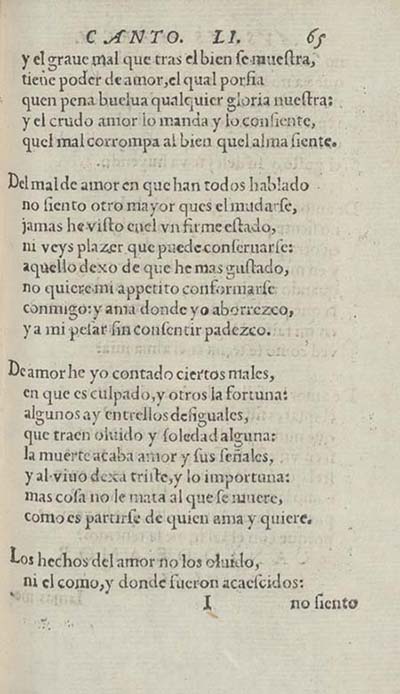 CANTO. LI. 65
y el graue mal que tras el bien se muestra,
tiene poder de amor, el qual porfia
quen pena buelua qualquier gloria nuestra:
y el crudo amor lo manda y lo consiente,
quel mal corrompa al bien quel alma siente.
Del mal de amor en que han todos hablado
no siento otro mayor ques el mudarse,
jamas he visto enel vn firme estado,
ni veys plazer que puede conseruarse:
aquello dexo de que he mas gustado,
no quiere mi appetito conformarse
conmigo: y ama donde yo aborrezco,
y a mi pesar sin consentir padezco.
De amor he yo contado ciertos males,
en que es culpado, y otros la fortuna:
algunos ay entrellos desiguales,
que traen oluido y soledad alguna:
la muerte acaba amor y sus señales,
y al viuo dexa triste, y lo importuna:
mas cosa no le mata al que se muere,
como es partirse de quien ama y quiere.
Los hechos del amor no los oluido,
ni el como, y donde fueron acaescidos:
I no siento